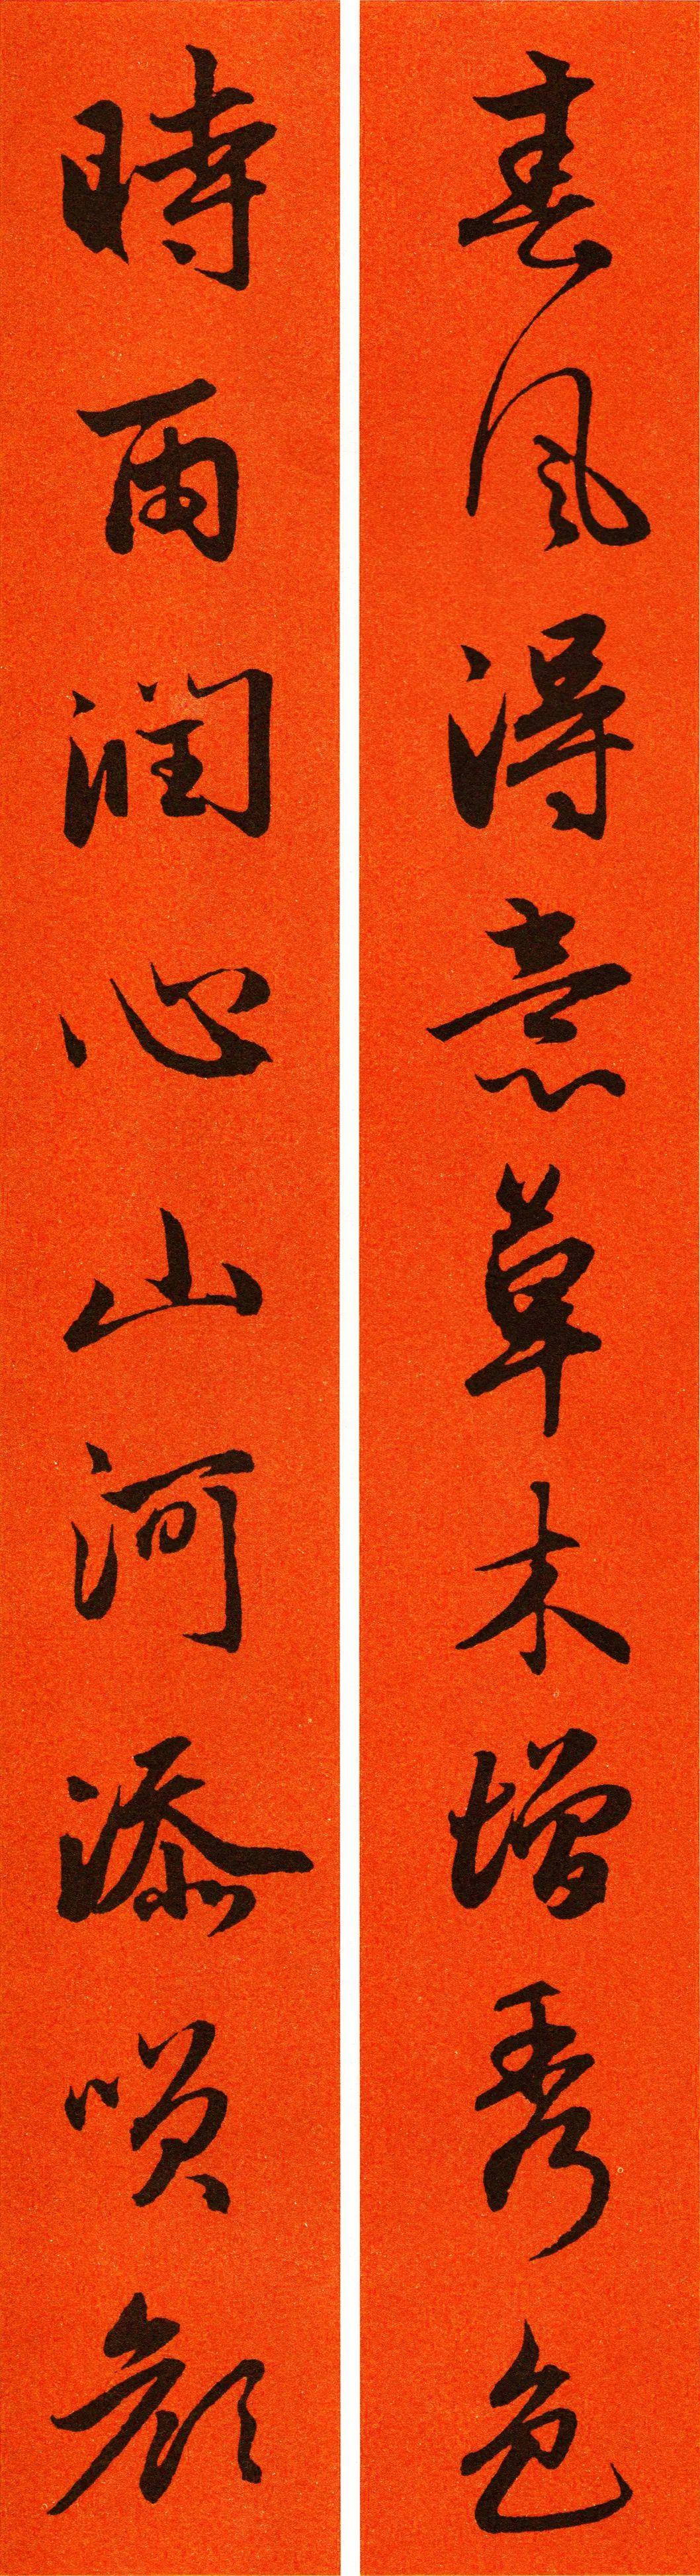 春風得意草木增秀色
時雨潤心山河添笑顏